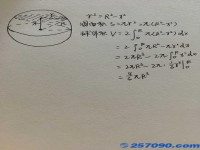 r²=R²-x²
圆面积 S=πr²=π(R²-x²)
球体积 V=2∫₀ᴿ π(R²-x²)dx
=2∫₀ᴿ πR²-πx²dx
=2πR³-2π∫₀ᴿ x²dx
=2πR³-2π·⅓x³|₀ᴿ
=4/3 πR³
257090.com